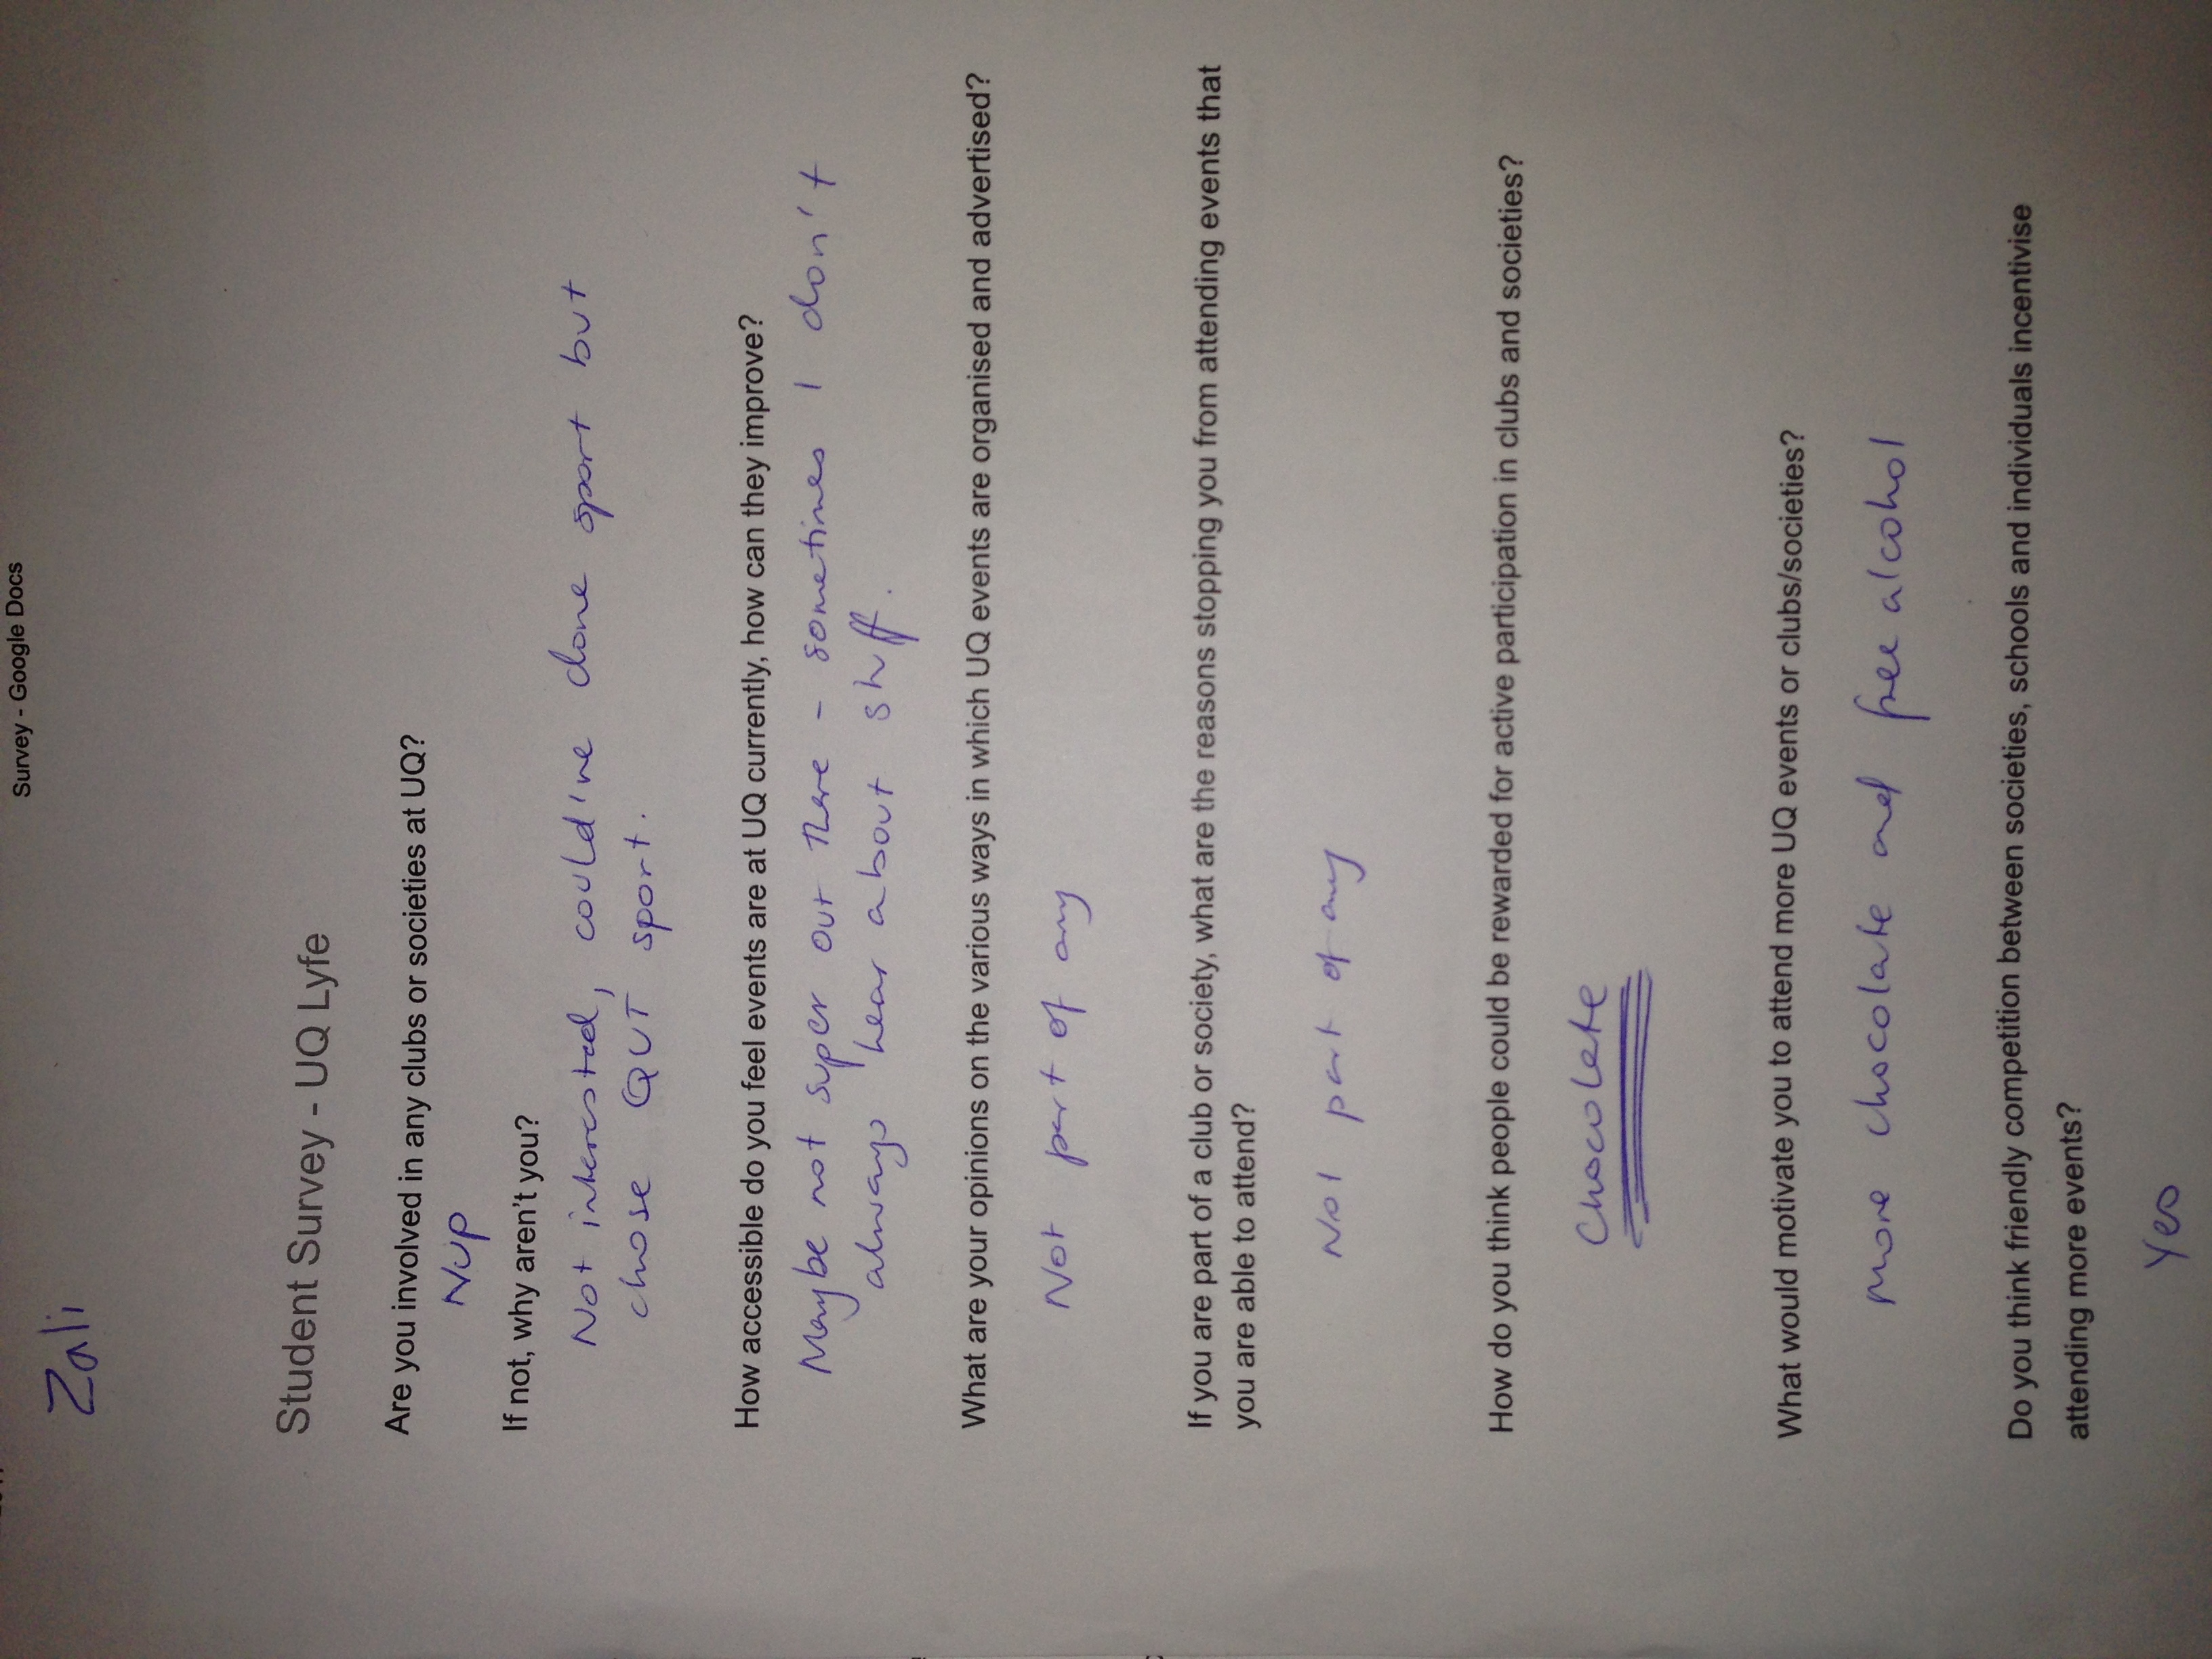 Survey - Google Docs
Zali
Student Survey - UQ Lyfe
Are you involved in any clubs or societies at UQ?
Nup
If not, why aren't you?
Not interested, could've done sport but
chose QUT sport.
How accessible do you feel events are at UQ currently, how can they improve?
Maybe not super out there - sometimes I don't
always hear about stuff.
What are your opinions on the various ways in which UQ events are organised and advertised?
Not part of any
If you are part of a club or society, what are the reasons stopping you from attending events that
you are able to attend?
Not part of any
How do you think people could be rewarded for active participation in clubs and societies?
Chocolate
What would motivate you to attend more UQ events or clubs/societies?
more chocolate and free alcohol
Do you think friendly competition between societies, schools and individuals incentivise
attending more events?
Yes